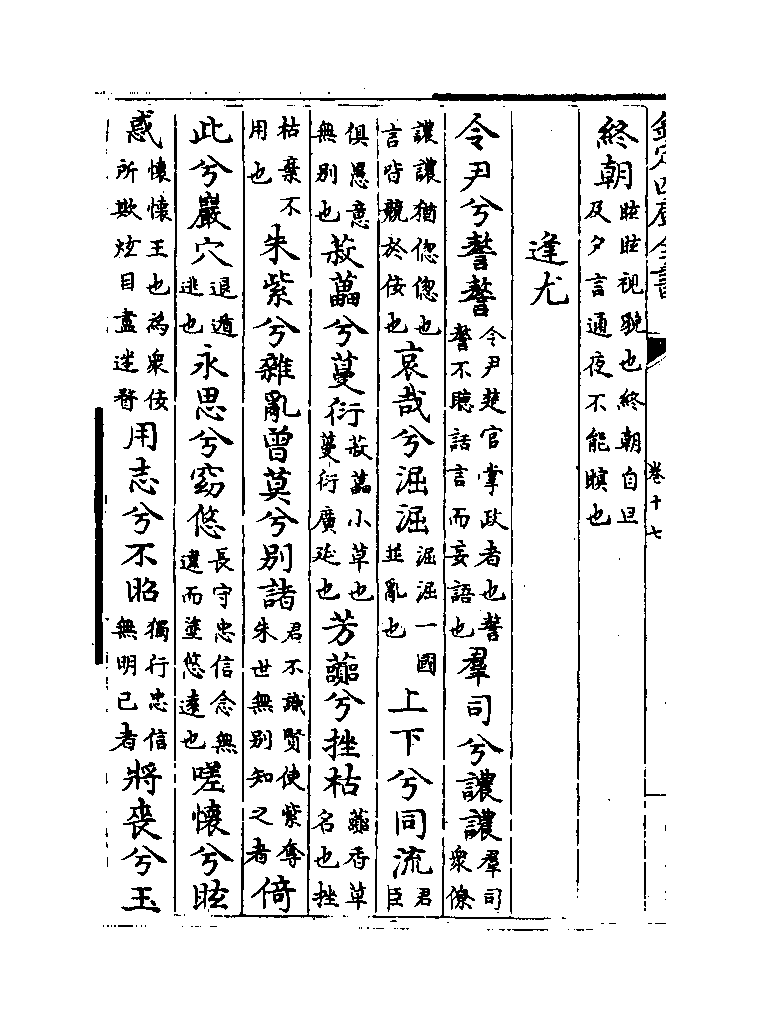 欽定四庫全書 卷十七
終朝眐眐視貌也終朝自旦及夕言通夜不能瞑也
逢尤
令尹兮謷謷令尹楚官掌政者也謷謷不聽話言而妄語也羣司兮譨譨羣司衆僚
譨譨猶偬偬也言皆競於佞也哀哉兮淈淈淈淈一國並亂也上下兮同流君臣
俱愚意無別也菽藟兮蔓衍菽藟小草也蔓衍廣延也芳虈兮挫枯虈香草名也挫
枯棄不用也朱紫兮雜亂曾莫兮別諸君不識賢使紫奪朱世無別知之者倚
此兮巖穴退遁逃也永思兮窈悠長守忠信念無違而塗悠遠也嗟懷兮眩
惑懷懷王也為衆佞所欺炫目盡迷瞀用志兮不昭獨行忠信無明己者將喪兮玉